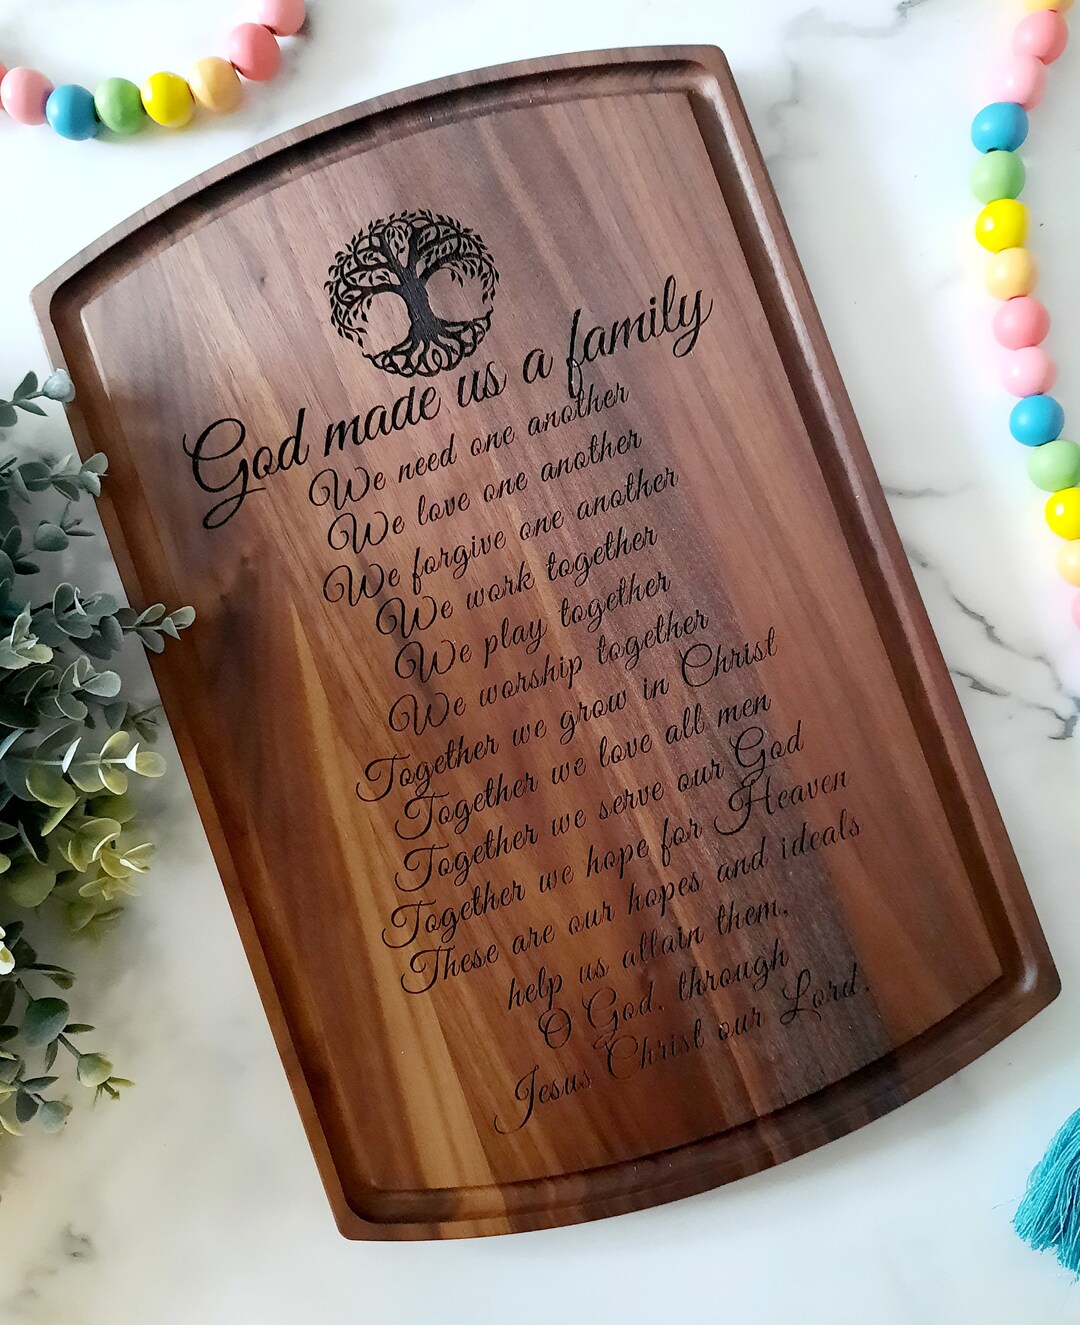 God made us a family
We need one another
We love one another
We forgive one another
We work together
We play together
We worship together
Together we grow in Christ
Together we love all men
Together we serve our God
Together we hope for Heaven
These are our hopes and ideals
help us attain them,
O God, through
Jesus Christ our Lord.